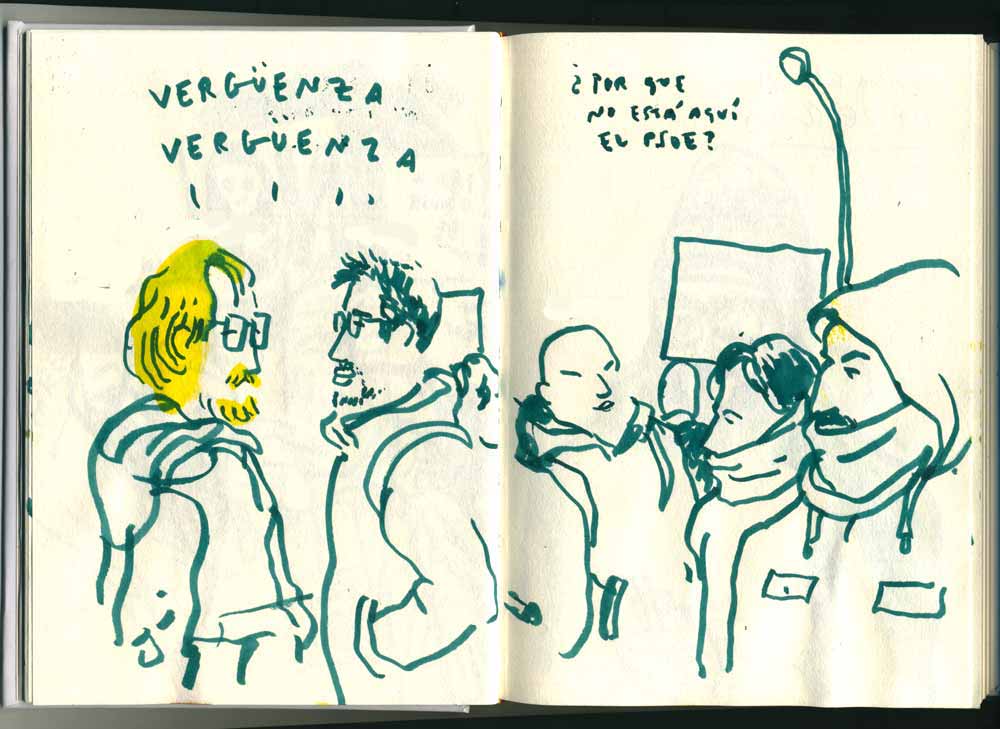 VERGÜENZA
VERGUENZA
¿POR QUE
NO ESTÁ AQUÍ
EL PSOE?